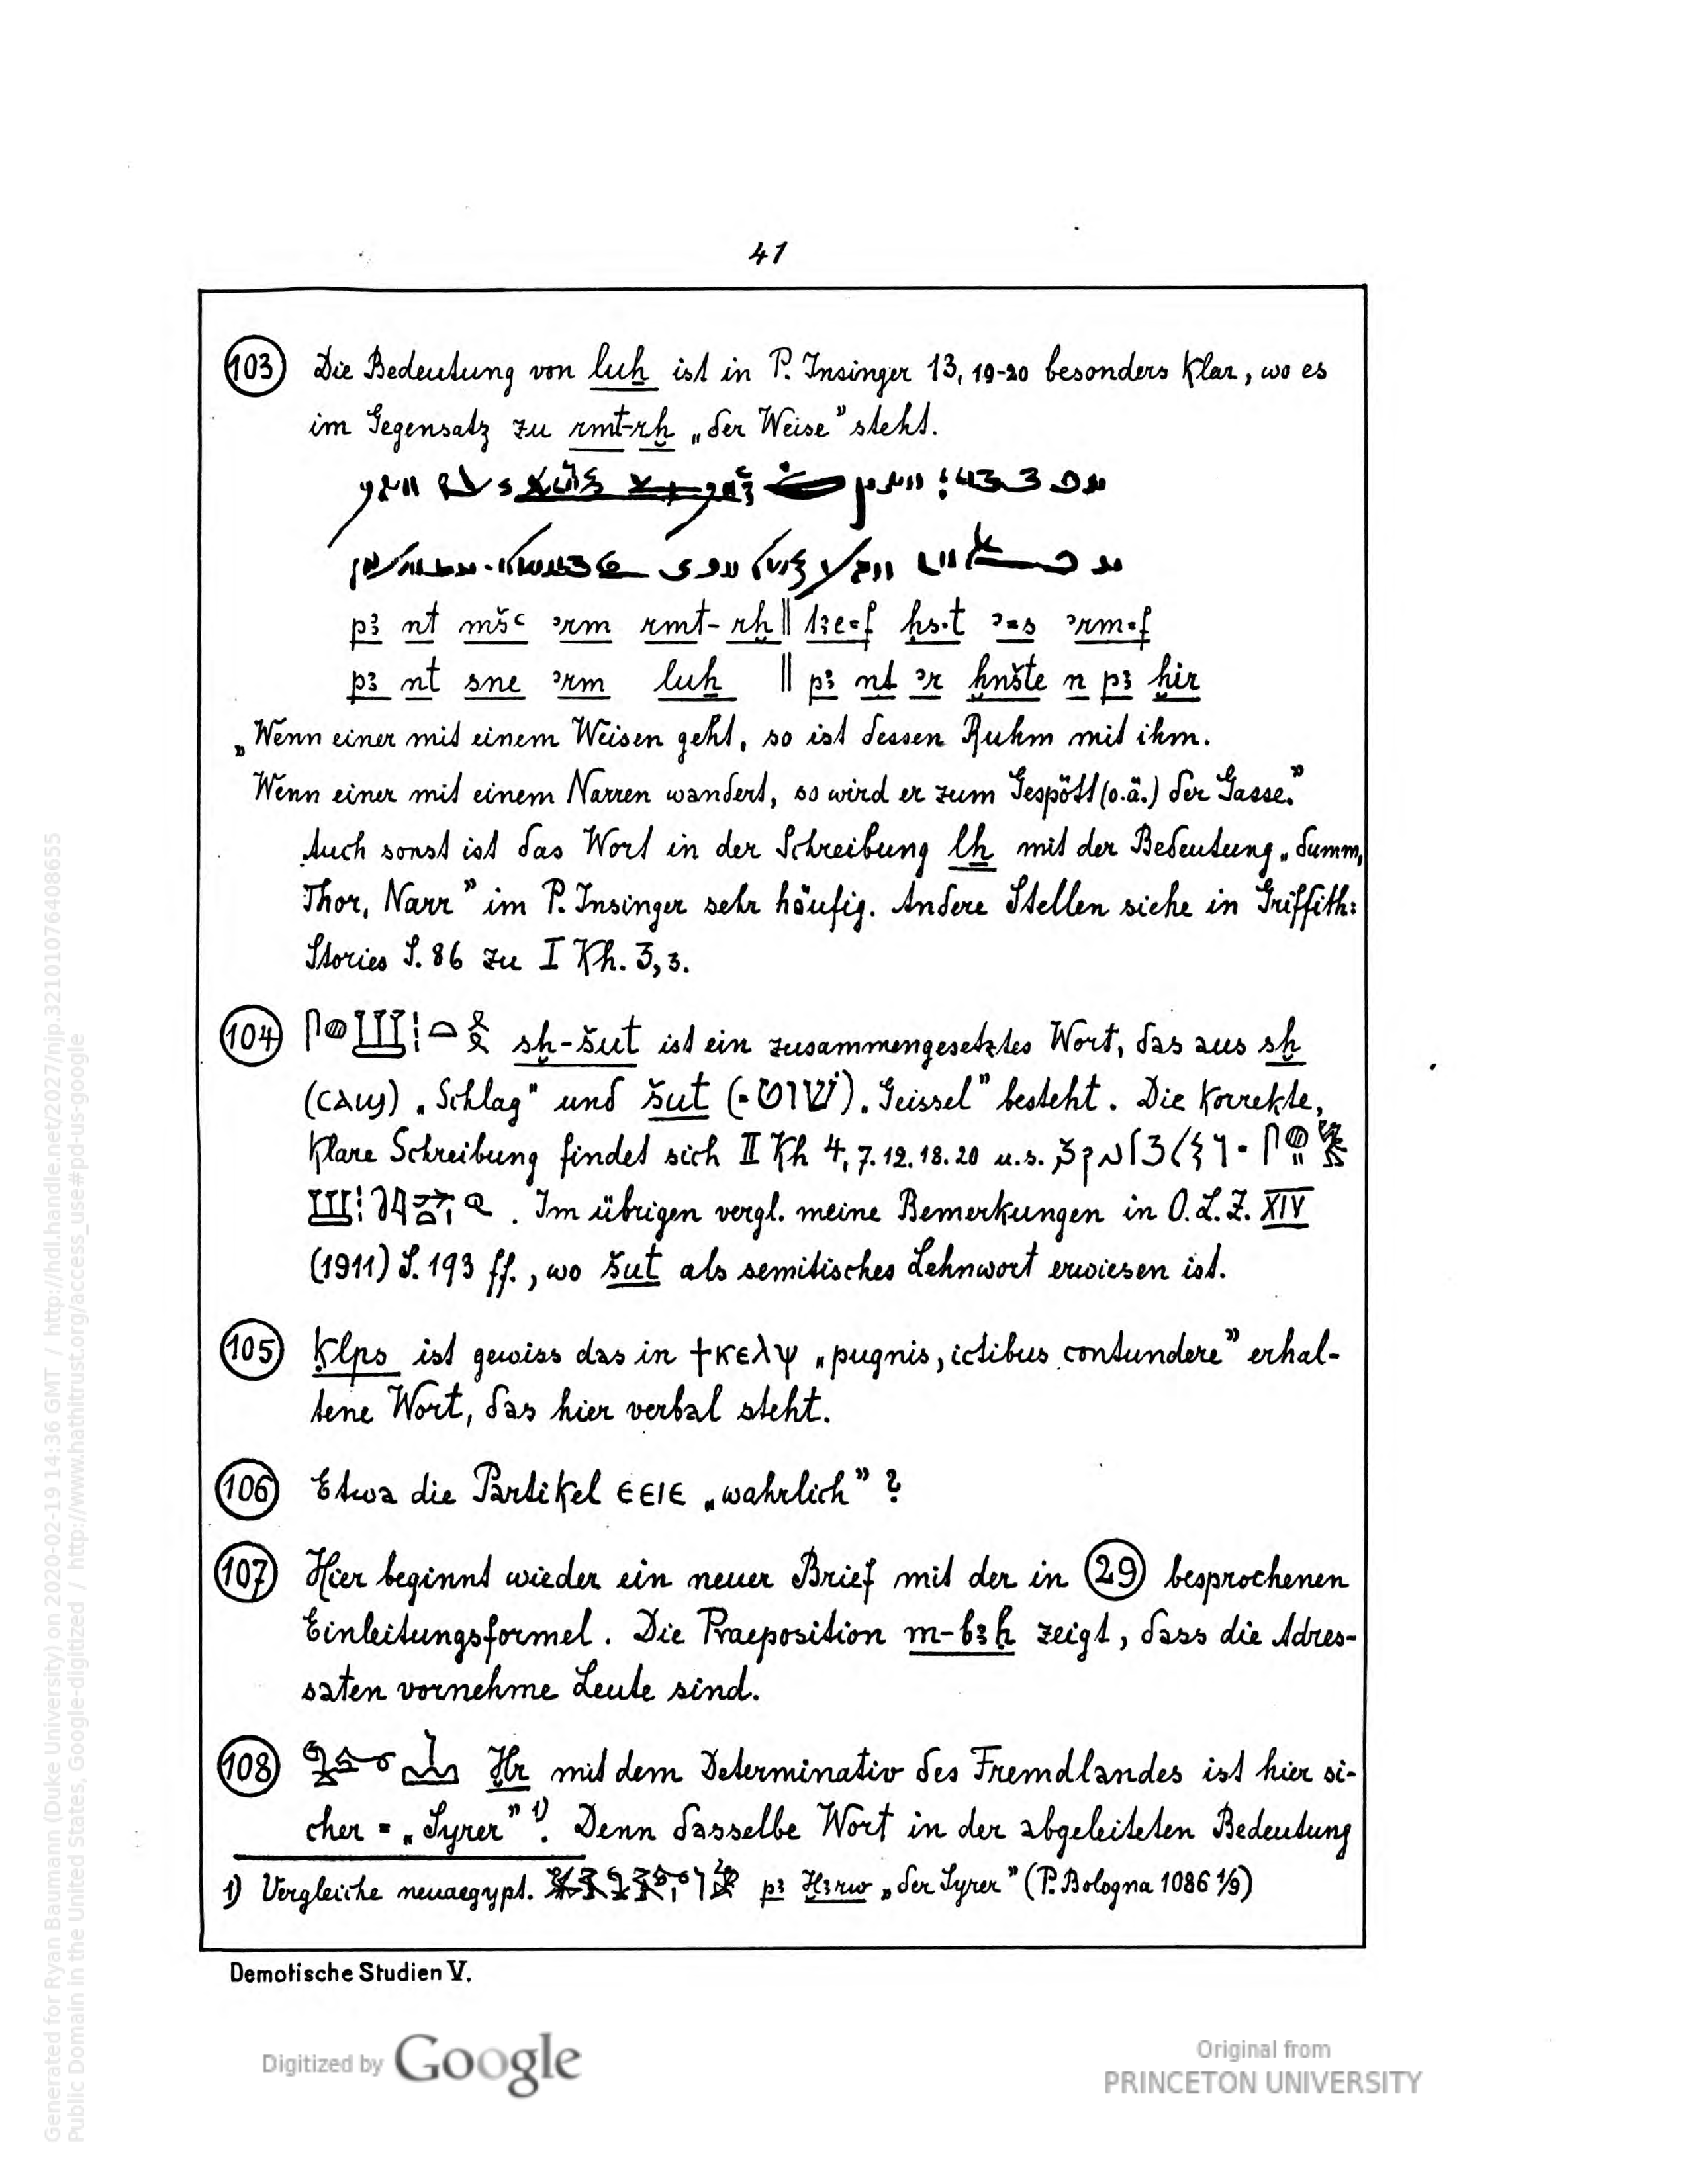 41
103 Die Bedeutung von luẖ ist in P. Insinger 13, 19-20 besonders klar, wo es
im Gegensatz zu rmt-rḫ „der Weise” steht.
pꜣ nt mšꜥ ꜣrm rmt-rḫ ‖ ꜣrm⸗f
pꜣ nt sne ꜣrm luẖ ‖ pꜣ nt ꜣr ḫnšte n pꜣ ḫir
„Wenn einer mit einem Weisen geht, so ist dessen Ruhm mit ihm.
Wenn einer mit einem Narren wandert, so wird er zum Gespött (o.ä.) der Gasse.”
Auch sonst ist das Wort in der Schreibung lẖ mit der Bedeutung „dumm,
Thor, Narr” im P. Insinger sehr häufig. Andere Stellen siehe in Griffith:
Stories S. 86 zu I Kh. 3,3.
104 sḫ-šut ist ein zusammengesetztes Wort, das aus sḫ
(ⲥⲁϣ) „Schlag” und šut (= שׁוֹט) „Geissel” besteht. Die korrekte,
klare Schreibung findet sich II Kh 4, 7. 12. 18. 20 u. s.
. Im übrigen vergl. meine Bemerkungen in O. L. Z. XIV
(1911) S. 193 ff., wo šut als semitisches Lehnwort erwiesen ist.
105 Ḳlps ist gewiss das in ϯⲕⲉⲗⲯ „pugnis, ictibus contundere” erhal-
tene Wort, das hier verbal steht.
106 Etwa die Partikel ⲉⲉⲓⲉ „wahrlich” ?
107 Hier beginnt wieder ein neuer Brief mit der in 29 besprochenen
Einleitungsformel. Die Praeposition m-bꜣḥ zeigt, dass die Adres-
saten vornehme Leute sind.
108 Ḫr mit dem Determinativ des Fremdlandes ist hier si-
cher = „Syrer” 1). Denn dasselbe Wort in der abgeleiteten Bedeutung
1) Vergleiche neuaegypt. pꜣ Ḫꜣrw „der Syrer” (P. Bologna 1086 1/9)
Demotische Studien V.
Digitized by Google
Original from
PRINCETON UNIVERSITY
Generated for Ryan Baumann (Duke University) on 2020-02-19 14:36 GMT / http://hdl.handle.net/2027/njp.32101076408655
Public Domain in the United States, Google-digitized / http://www.hathitrust.org/access_use#pd-us-google